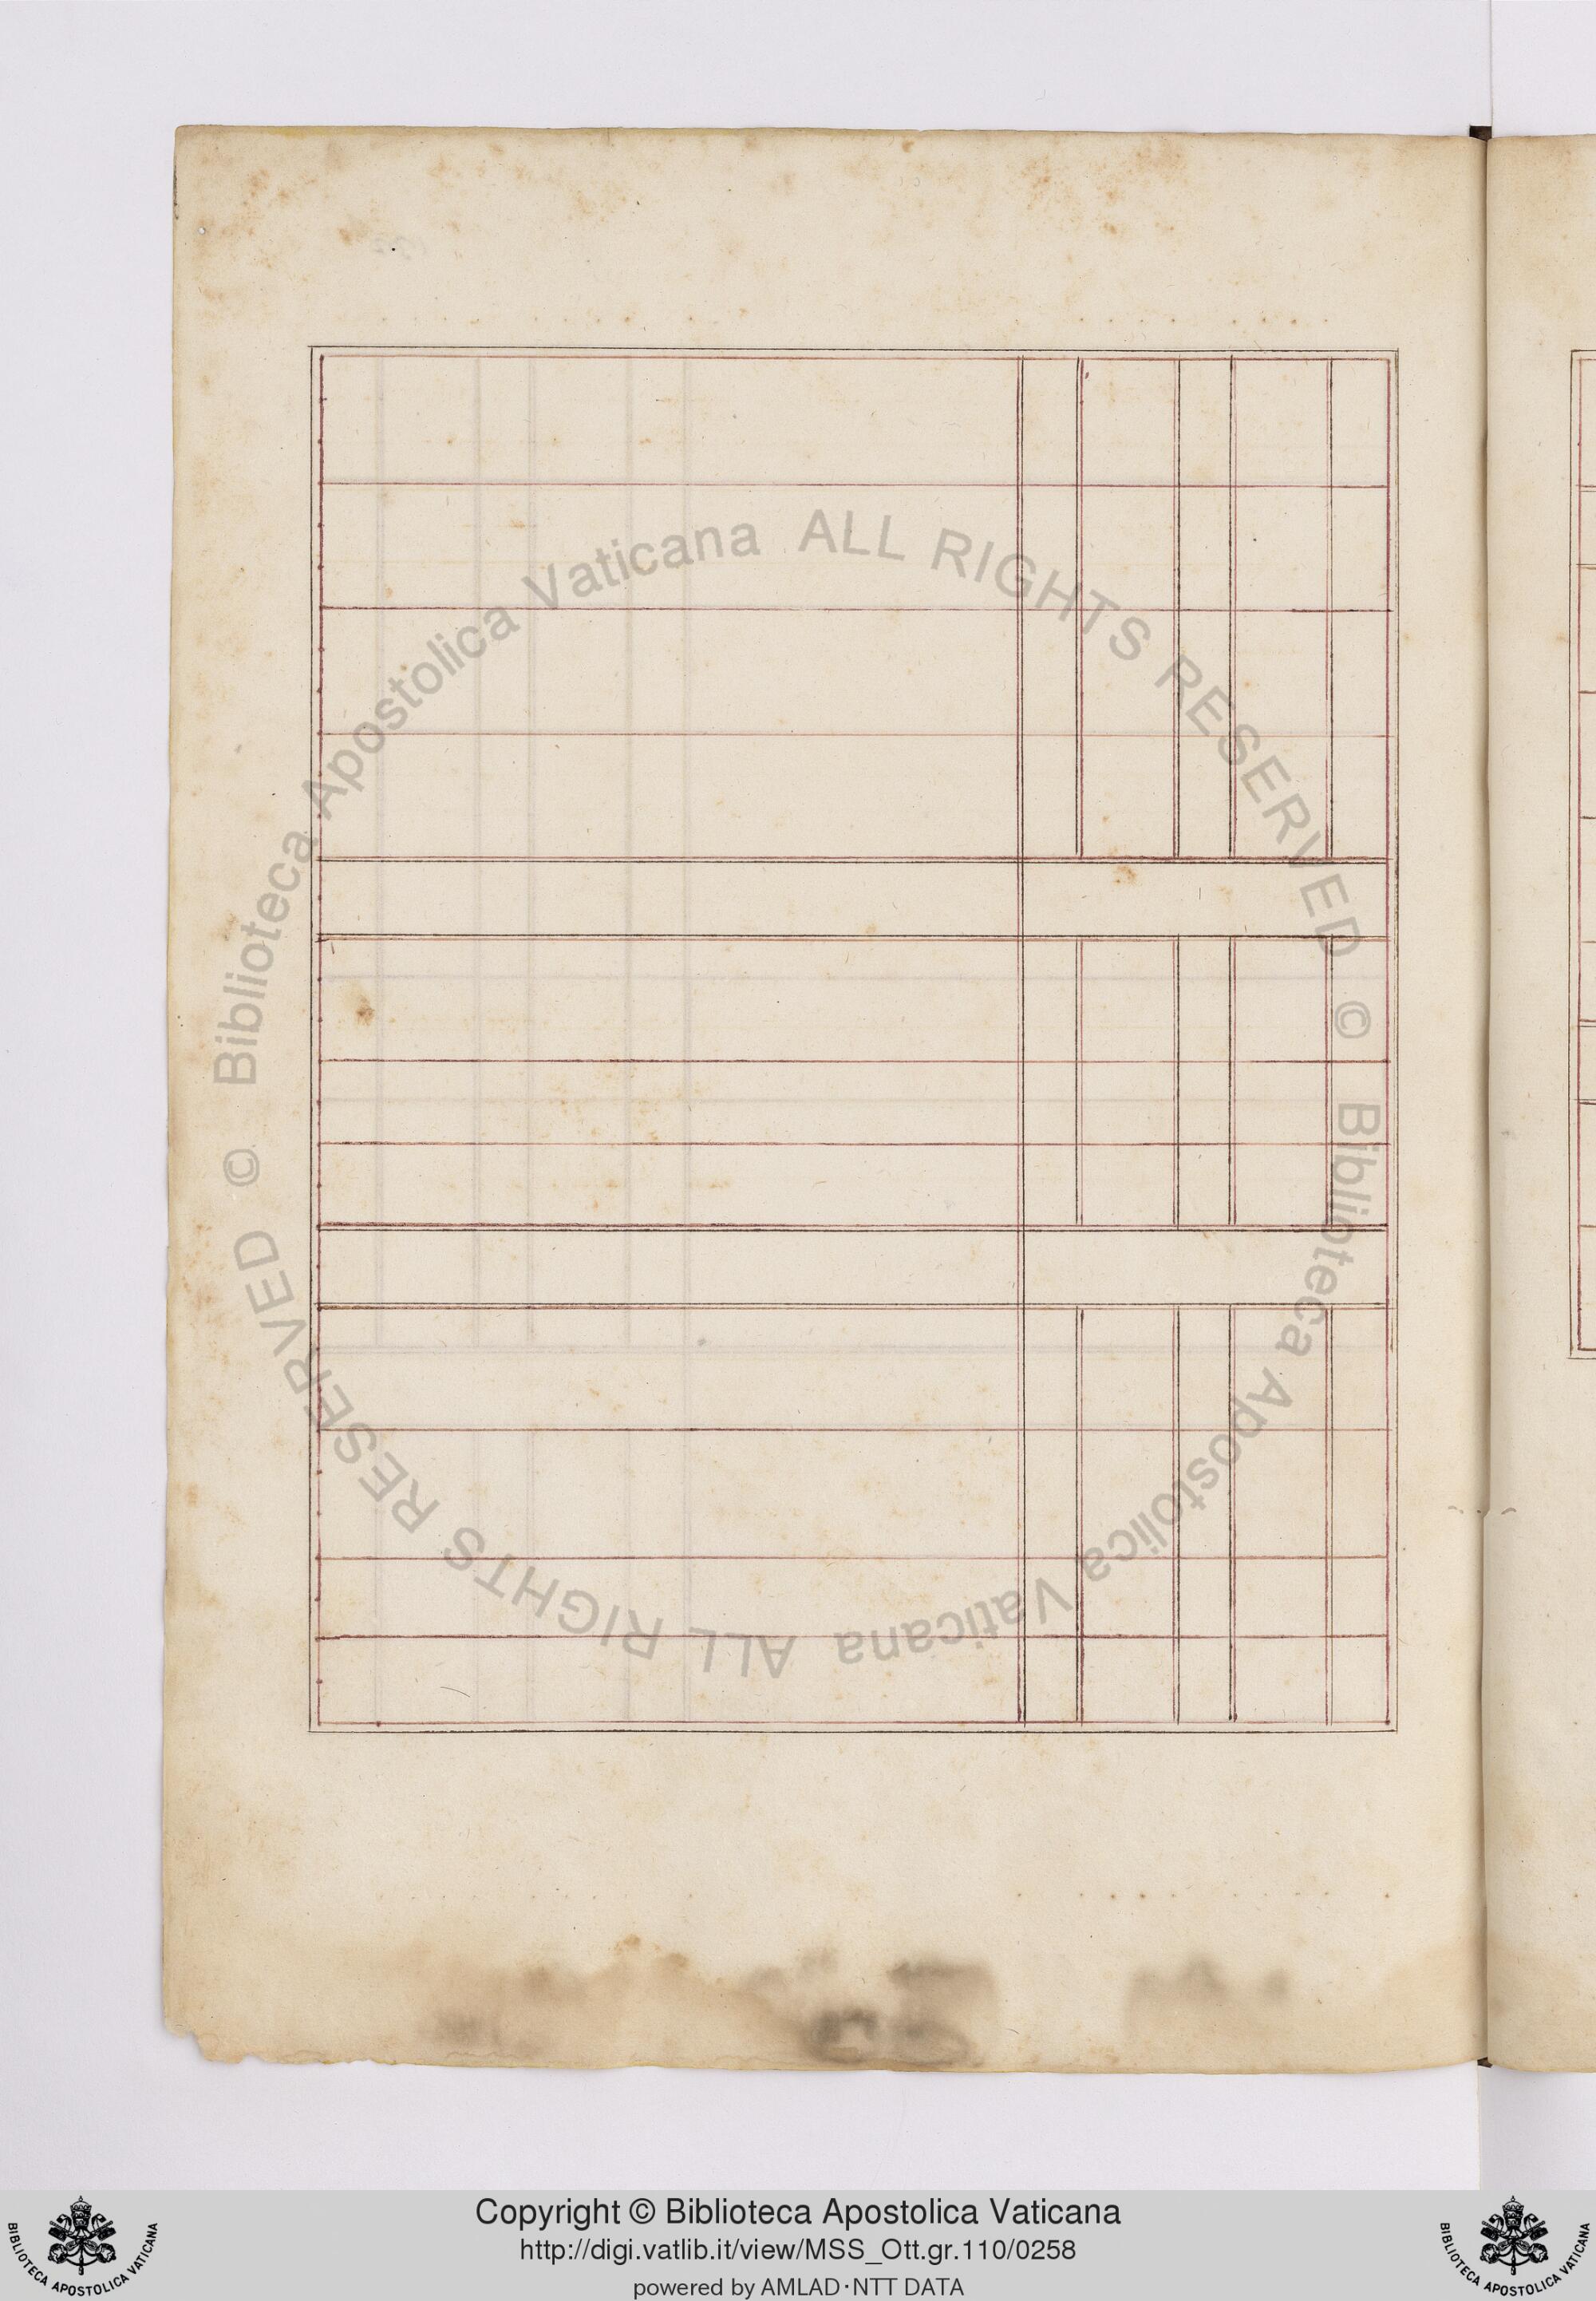 © Biblioteca Apostolica Vaticana ALL RIGHTS RESERVED
© Biblioteca Apostolica Vaticana ALL RIGHTS RESERVED
Copyright © Biblioteca Apostolica Vaticana
http://digi.vatlib.it/view/MSS_Ott.gr.110/0258
powered by AMLAD·NTT DATA
BIBLIOTECA APOSTOLICA VATICANA
BIBLIOTECA APOSTOLICA VATICANA